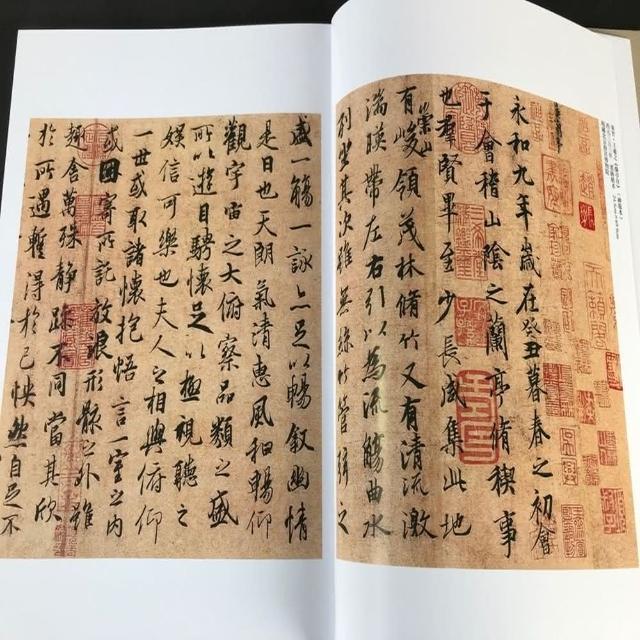 永和九年歲在癸丑暮春之初會
于會稽山陰之蘭亭脩稧事
也羣賢畢至少長咸集此地
有崇山峻領茂林脩竹又有清流激
湍暎帶左右引以為流觴曲水
列坐其次雖無絲竹管弦之
盛一觴一詠亦足以暢叙幽情
是日也天朗氣清惠風和暢仰
觀宇宙之大俯察品類之盛
所以遊目騁懷足以極視聽之
娛信可樂也夫人之相與俯仰
一世或取諸懷抱悟言一室之內
或因寄所託放浪形骸之外雖
趣舍萬殊靜躁不同當其欣
於所遇蹔得於己怏然自足不